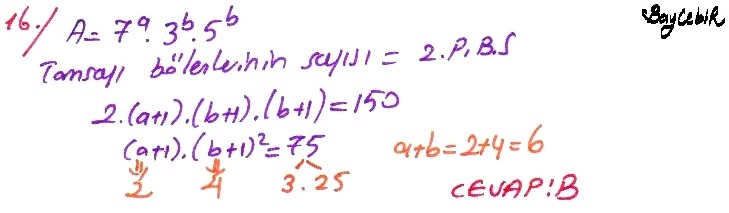 BAYCEBİR
16./ A = 7^a . 3^b . 5^b
Tamsayı bölenlerinin sayısı = 2.P.B.S
2.(a+1).(b+1).(b+1)=150
(a+1).(b+1)²=75
a+b=2+4=6
2 4 3.25
CEVAP:B